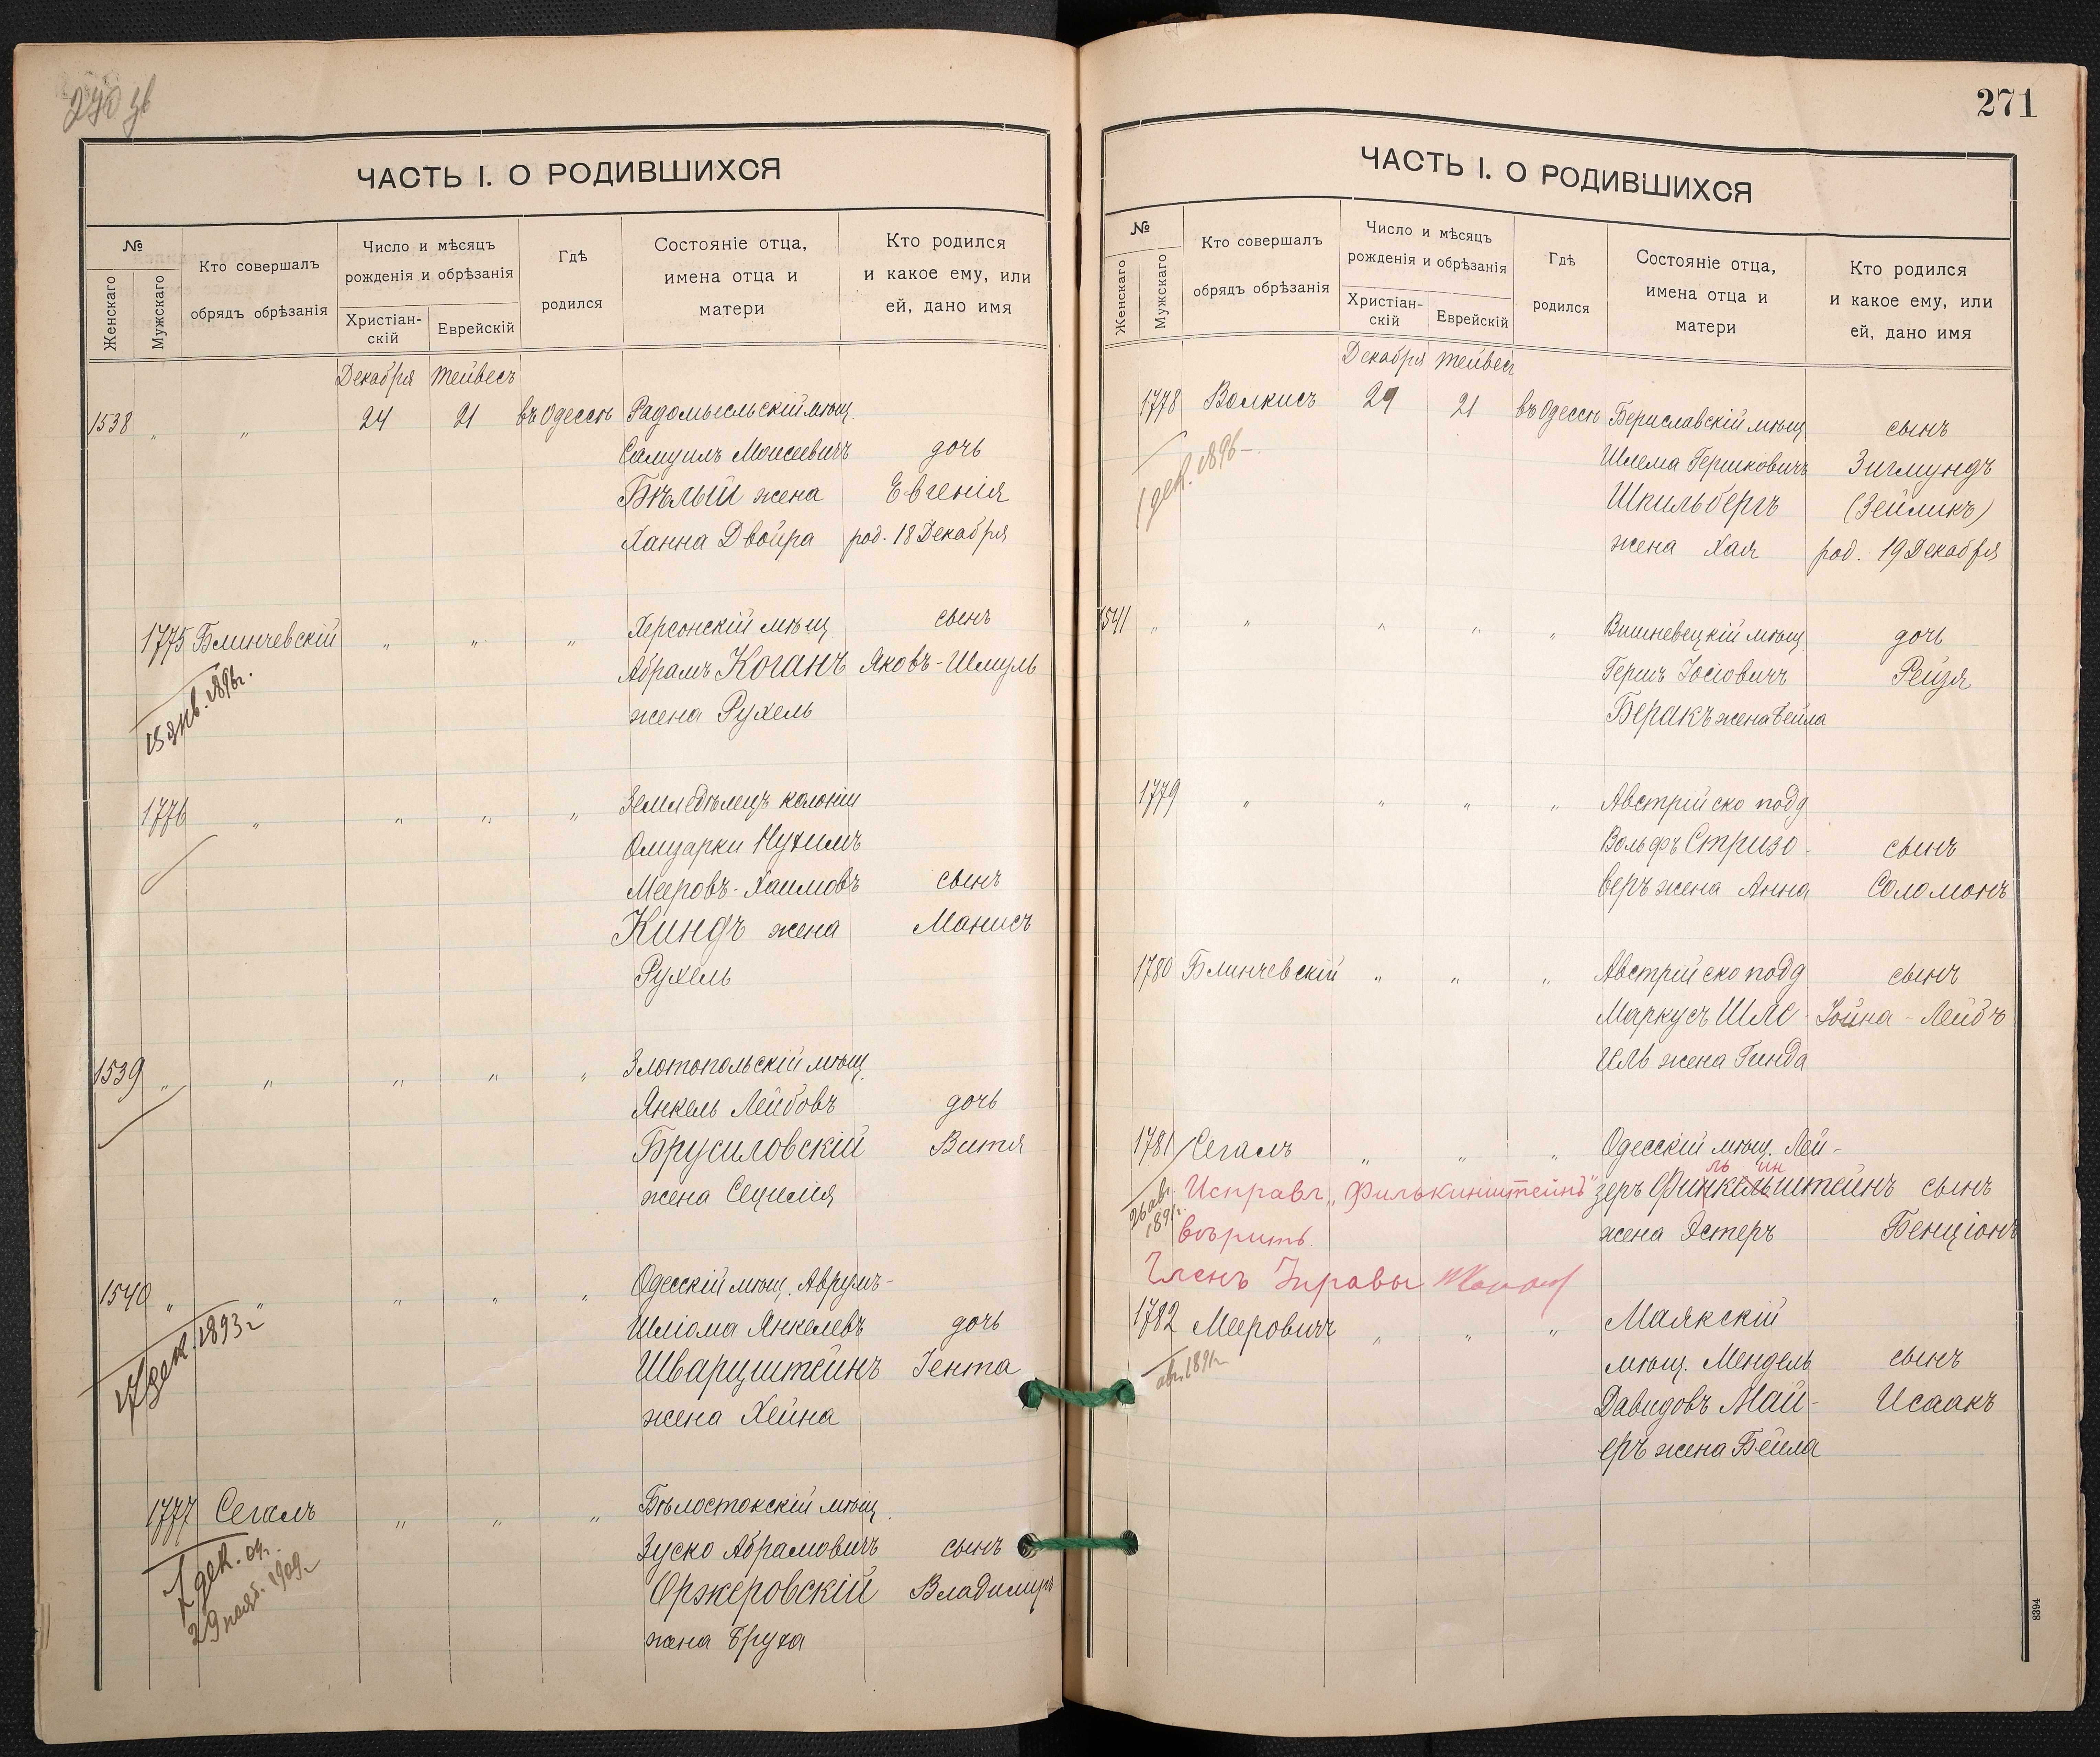 270 зв
ЧАСТЬ I. О РОДИВШИХСЯ
№
Женскаго
Мужскаго
Кто совершалъ
обрядъ обрѣзанія
Число и мѣсяцъ
рожденія и обрѣзанія
Христіан-
скій
Еврейскій
Гдѣ
родился
Состояніе отца,
имена отца и
матери
Кто родился
и какое ему, или
ей, дано имя
Декабря Тейвесъ
1538 " " 24 21 въ Одессѣ Радомысльскій мѣщ.
Самуилъ Моисеевичъ дочь
Бѣлый жена Евгенія
Ханна Двойра род. 18 Декабря
1775 Блинчевскій " " " Херсонскій мѣщ. сынъ
Абрамъ Коганъ Яковъ-Шмуль
жена Рухель
1896г.
1776 " " " " Земледѣлецъ колоніи
Нухимъ
Мееровъ-Хаимовъ сынъ
Киндъ жена Манисъ
Рухель
1539 " " " " " Злотопольскій мѣщ.
Янкель Лейбовъ дочь
Брусиловскій Витя
жена Сецилія
1540 " " " " " Одесскій мѣщ. Аврумъ-
Шліома Янкелевъ дочь
Шварцштейнъ Іента
жена Хейна
17 дек. 1893г
1777 Сегалъ " " " Бѣлостокскій мѣщ.
Зуско Абрамовичъ сынъ
Оржеровскій Владимиръ
жена Бруха
1 дек. 04г.
29 нояб. 1909г
271
ЧАСТЬ I. О РОДИВШИХСЯ
№
Женскаго
Мужскаго
Кто совершалъ
обрядъ обрѣзанія
Число и мѣсяцъ
рожденія и обрѣзанія
Христіан-
скій
Еврейскій
Гдѣ
родился
Состояніе отца,
имена отца и
матери
Кто родился
и какое ему, или
ей, дано имя
Декабря Тейвес
1778 Волкисъ 29 21 въ Одессѣ Бериславскій мѣщ сынъ
Шлема Гершковичъ Зигмундъ
Шпильбергъ (Зейликъ)
жена Хая род. 19 Декабря
1 дек. 1896
1541 " " " " " Вишневецкій мѣщ. дочь
Гершъ Іосіовичъ Рейзя
Беракъ жена Бейла
1779 " " " " Австрійско подд
Вольфъ Стризо- сынъ
веръ жена Анна Соломонъ
1780 Блинчевскій " " " Австрійско подд сынъ
Маркусъ Шле Іойна-Лейбъ
иль жена Гинда
1781 Сегалъ " " " Одесскій мѣщ. Лей-
ль ин
зеръ Финкельштейнъ сынъ
жена Эстеръ Бенціонъ
Исправл. „Филькинштейнъ"
вѣрить.
Членъ Управы
1782 Мееровичъ " " " Маякскій
мѣщ. Мендель сынъ
Давидовъ Май- Исаакъ
еръ жена Бейла
8394